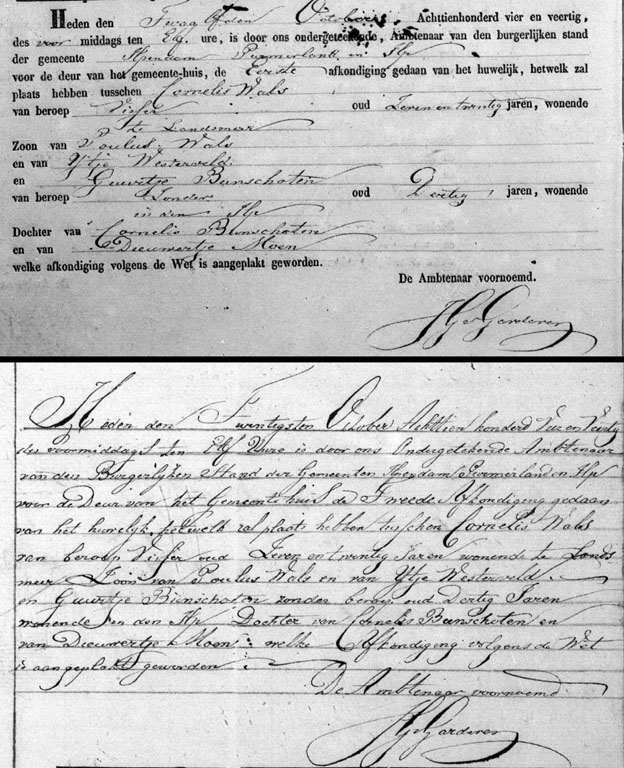 Heden den Twaalfden October Achttienhonderd vier en veertig,
des voor middags ten Elf ure, is door ons ondergeteekende, Ambtenaar van den burgerlijken stand
der gemeente Ilpendam Purmerland en Ilp
voor de deur van het gemeente-huis, de Eerste afkondiging gedaan van het huwelijk, hetwelk zal
plaats hebben tusschen Cornelis Wals
van beroep Visser oud Zeven en twintig jaren, wonende
te Landsmeer
Zoon van Poulus Wals
en van IJtje Westerveld
en Guurtje Bunschoten
van beroep Zonder oud Dertig jaren, wonende
in den Ilp
Dochter van Cornelis Bunschoten
en van Dieuwertje Moen
welke afkondiging volgens de Wet is aangeplakt geworden.
De Ambtenaar voornoemd.
Garderen
Heden den Twintigsten October Achttien honderd Vier en Veertig
des voormiddags ten Elf Uure is door ons Ondergetekende Ambtenaar
van den Burgerlyken Stand der Gemeenten Ilpendam Purmerland en Ilp
voor de Deur van het Gemeente huis de Tweede Afkondiging gedaan
van het huwelijk, hetwelk zal plaats hebben tusschen Cornelis Wals
van beroep Visser oud Zeven en twintig Jaren wonende te Lands
meer Zoon van Poulus Wals en van IJtje Westerveld
en Guurtje Bunschoten zonder beroep oud Dertig Jaren
wonende in den Ilp Dochter van Cornelis Bunschoten en
van Dieuwertje Moen welke Afkondiging volgens de Wet
is aangeplakt geworden
De Ambtenaar voornoemd
Garderen